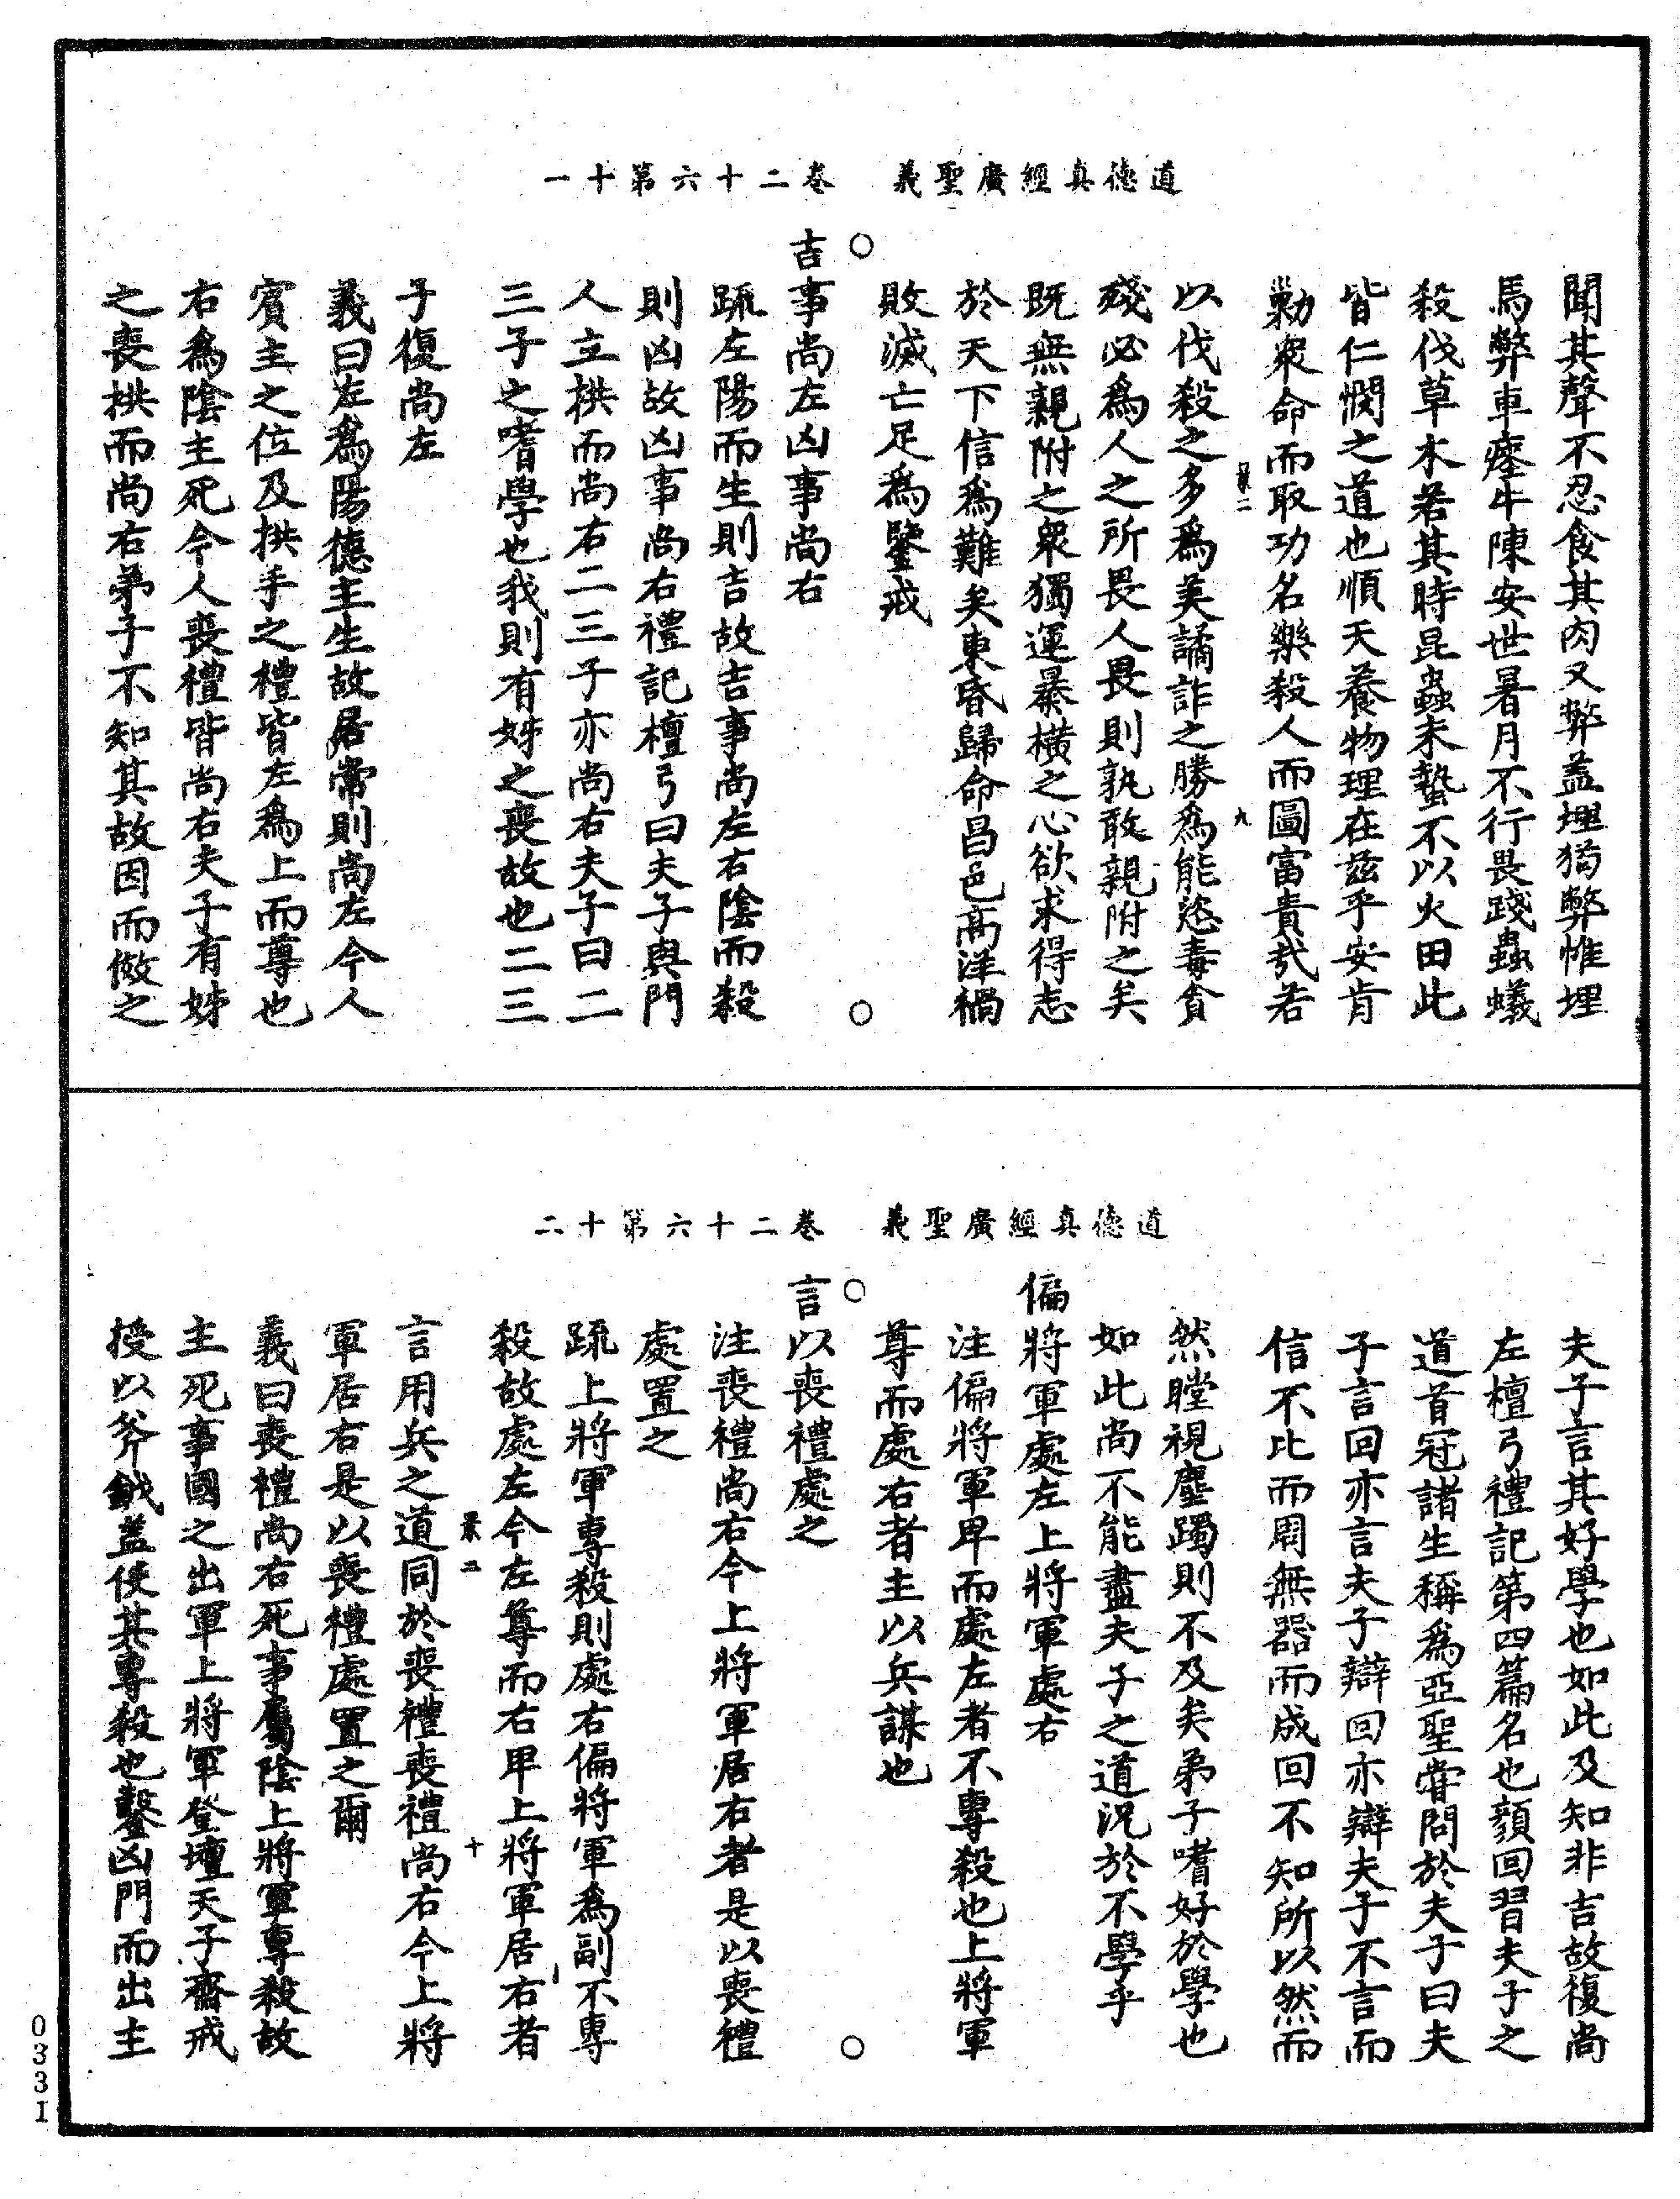 道德真經廣聖義　卷二十六第十一
聞其聲不忍食其肉又弊蓋埋狗弊帷埋
馬弊車瘞牛陳安世暑月不行畏踐蟲蟻
殺伐草木若其時昆蟲未蟄不以火田此
皆仁憫之道也順天養物理在茲乎安肯
勦衆命而取功名樂殺人而圖富貴哉若
九
以伐殺之多爲美譎詐之勝爲能恣毒貪
殘必爲人之所畏人畏則孰敢親附之矣
既無親附之衆獨運暴橫之心欲求得志
於天下信爲難矣東昏歸命昌邑高洋禍
敗滅亡足爲鑒戒
吉事尚左凶事尚右
疏左陽而生則吉故吉事尚左右陰而殺
則凶故凶事尚右禮記檀弓曰夫子與門
人立拱而尚右二三子亦尚右夫子曰二
三子之嗜學也我則有姊之喪故也二三
子復尚左
義曰左爲陽德主生故居常則尚左今人
賓主之位及拱手之禮皆左爲上而尊也
右爲陰主死今人喪禮皆尚右夫子有姊
之喪拱而尚右弟子不知其故因而倣之
道德真經廣聖義　卷二十六第十二
夫子言其好學也如此及知非吉故復尚
左檀弓禮記第四篇名也顏回習夫子之
道首冠諸生稱爲亞聖嘗問於夫子曰夫
子言回亦言夫子辯回亦辯夫子不言而
信不比而周無器而成回不知所以然而
然瞠視塵躅則不及矣弟子嗜好於學也
如此尚不能盡夫子之道況於不學乎
偏將軍處左上將軍處右
注偏將軍卑而處左者不專殺也上將軍
尊而處右者主以兵謀也
言以喪禮處之
注喪禮尚右今上將軍居右者是以喪禮
處置之
疏上將軍專殺則處右偏將軍爲副不專
殺故處左今左尊而右卑上將軍居右者
十
言用兵之道同於喪禮喪禮尚右今上將
軍居右是以喪禮處置之爾
義曰喪禮尚右死事屬陰上將軍專殺故
主死事國之出軍上將軍登壇天子齋戒
授以斧鉞蓋使其專殺也鑿凶門而出主
0331